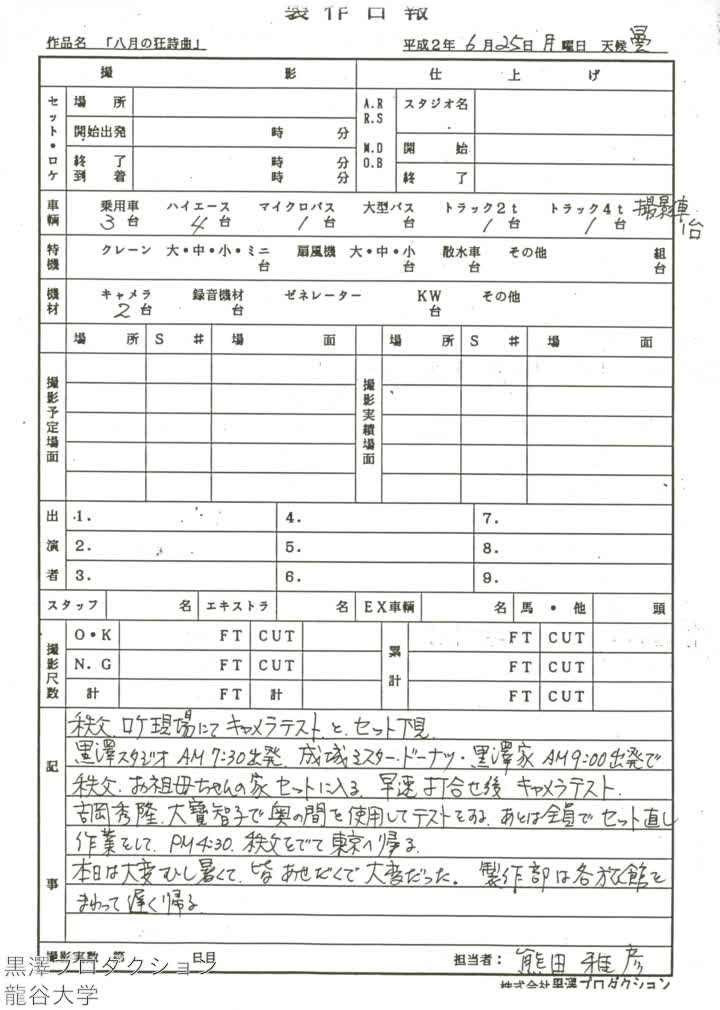 製作日報
作品名 「八月の狂詩曲」 平成2年 6月25日 月曜日 天候 曇
撮 影 仕 上 げ
セット・ロケ 場 所 A.R R.S M.D O.B スタジオ名
開始出発 時 分 開 始
終 了 時 分
到 着 時 分 終 了
車輌 乗用車 ハイエース マイクロバス 大型バス トラック2t トラック4t 撮影車
3台 4台 1台 台 1台 1台 1台
特機 クレーン 大・中・小・ミニ 扇風機 大・中・小 散水車 その他 組
台 台 台 台
機材 キャメラ 録音機材 ゼネレーター KW その他
2台 台 台
場 所 S # 場 面 場 所 S # 場 面
撮影予定場面 撮影実績場面
出演者 1. 4. 7.
2. 5. 8.
3. 6. 9.
スタッフ 名 エキストラ 名 EX車輌 名 馬・他 頭
撮影尺数 O・K FT CUT 累計 FT CUT
N.G FT CUT FT CUT
計 FT 計 FT CUT
記事
秩父、ロケ現場にてキャメラテストと、セット下見
黒澤スタジオ AM7:30出発、成城ミスタードーナツ・黒澤家 AM9:00出発で
秩父、お祖母ちゃんの家セットに入る、早速打合せ後 キャメラテスト、
吉岡秀隆、大寶智子で奥の間を使用してテストをする、あとは全員でセット直し
作業をして、PM4:30、秩父をでて東京へ帰る、
本日は大変むし暑くて、皆あせだくで大変だった。 製作部は各旅館を
まわって遅く帰る
撮影実数 第 日目 担当者: 熊田雅彦
株式会社黒澤プロダクション
黒澤プロダクション
龍谷大学